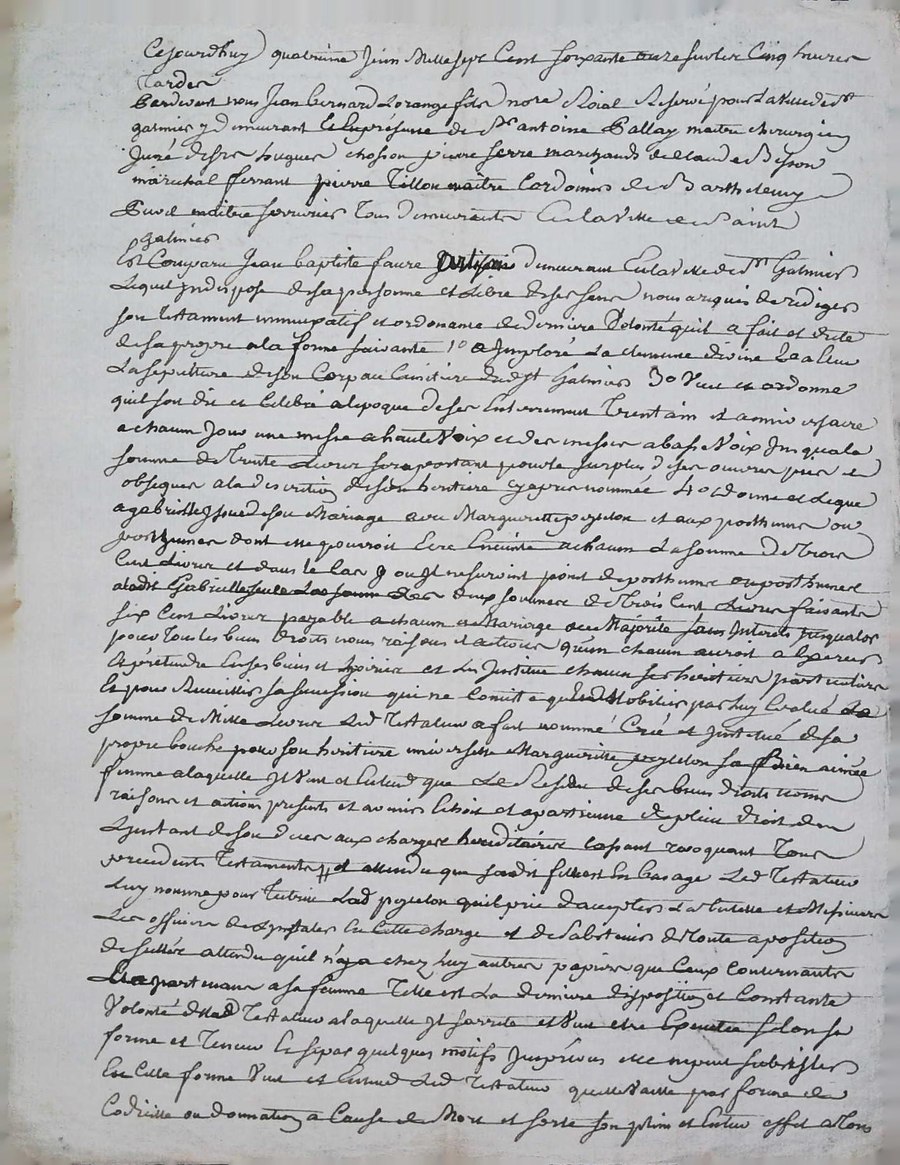 Cejourdhuy quatrieme Juin Mille sept Cent soixante onze sur les Cinq heures
Tardes
Pardevant nous Jean Bernard Lorange fils nore Roial Reservé pour la ville de st
galmier y demeurant Et En presence de Sr antoine Pallay maitre chirurgien
Juré desr hugues chosson pierre serre marchands de Claude Besson
maréchal ferrant pierre Tillon maitre Cordonier de Barthelemy
maitre serrurier Tous demeurants En la ville de Saint
galmier
Est Comparu Jean baptiste faure demeurant En la ville de st Galmier
Lequel Indisposé de sa personne et Libre de ses sens nous a requis de rediger
son testament nuncupatif et ordonance de derniere Volonté quil a fait et dicté
de sa propre a la forme suivante 1o a Imploré La clemence divine
La sepulture de son Corp au Cimitiere dudst Galmier 3o Veut et ordonne
quil soit dit et Celebré a lepoque de ses Enterrement Trentain et anniversaire
a chacun Jour une messe a haute Voix et des messes a basse Voix Jusqua la
somme de Trente Livres se raportant pour le surplus de ses oeuvres pies et
obseques a la discrétion de son heritiere cy apres nommée 4o donne et Legue
a gabrielle Issue de son Mariage avec Margueritte peyrelon et aux posthume ou
posthumes dont elle pouroit Etre Enceinte a chacun La somme de Trois
Cent Livres et dans le Cas ou Il ne surviut point de posthume ou posthumes
aladit Gabrielle seule Las somme des deux sommes de Trois Cent Livres faisants
six Cent Livres payable a chacun a Mariage ou Majorité sans Interets Jusqualors
pour Tous les biens droits noms raisons et actions qu'un chacun auroit a Esperer
et prétendre En ses biens et hoirie et Les Institue chacun ses heritiers particuliers
Et pour Recueillir sa succession qui ne Consiste quEn Mobilier par Luy Evalué La
somme de Mille Livres Led Testateur a fait nommé Créé et Institué de sa
propre bouche pour son heritiere universelle Margueritte peyrelon sa Bien aimée
femme a laquelle Il Veut et Entend que Le Residu de ses biens droits noms
raisons et actions presents et avenir Echoit et apartienne de plein droit des
Linstant de son deces aux charges hereditaires Cassant revoquant Tous
precedents Testaments et attendu que sadit fille est En bas age Led Testateur
Luy nomme pour Tutrice Lad peyrelon quil prie daccepter La tutelle et Messieurs
Les officiers de Linstaler En Cette charge et de sabstenir de Toute aposition
de scellés attendu quil n'y a chez Luy autres papiers que Ceux Concernants
apartenans a sa femme Telle est La derniere disposition et Constante
Volonté dudd Testateur a laquelle Il sarrete et Veut etre Executée selon sa
forme et Teneur Et si par quelques motifs Impréveus elle ne peut subsister
En Cette forme Veut et Entend Led Testateur quelle Vaille par forme de
Codicille ou donnation a Cause de Mort et sorte son plein et Entier effet alors